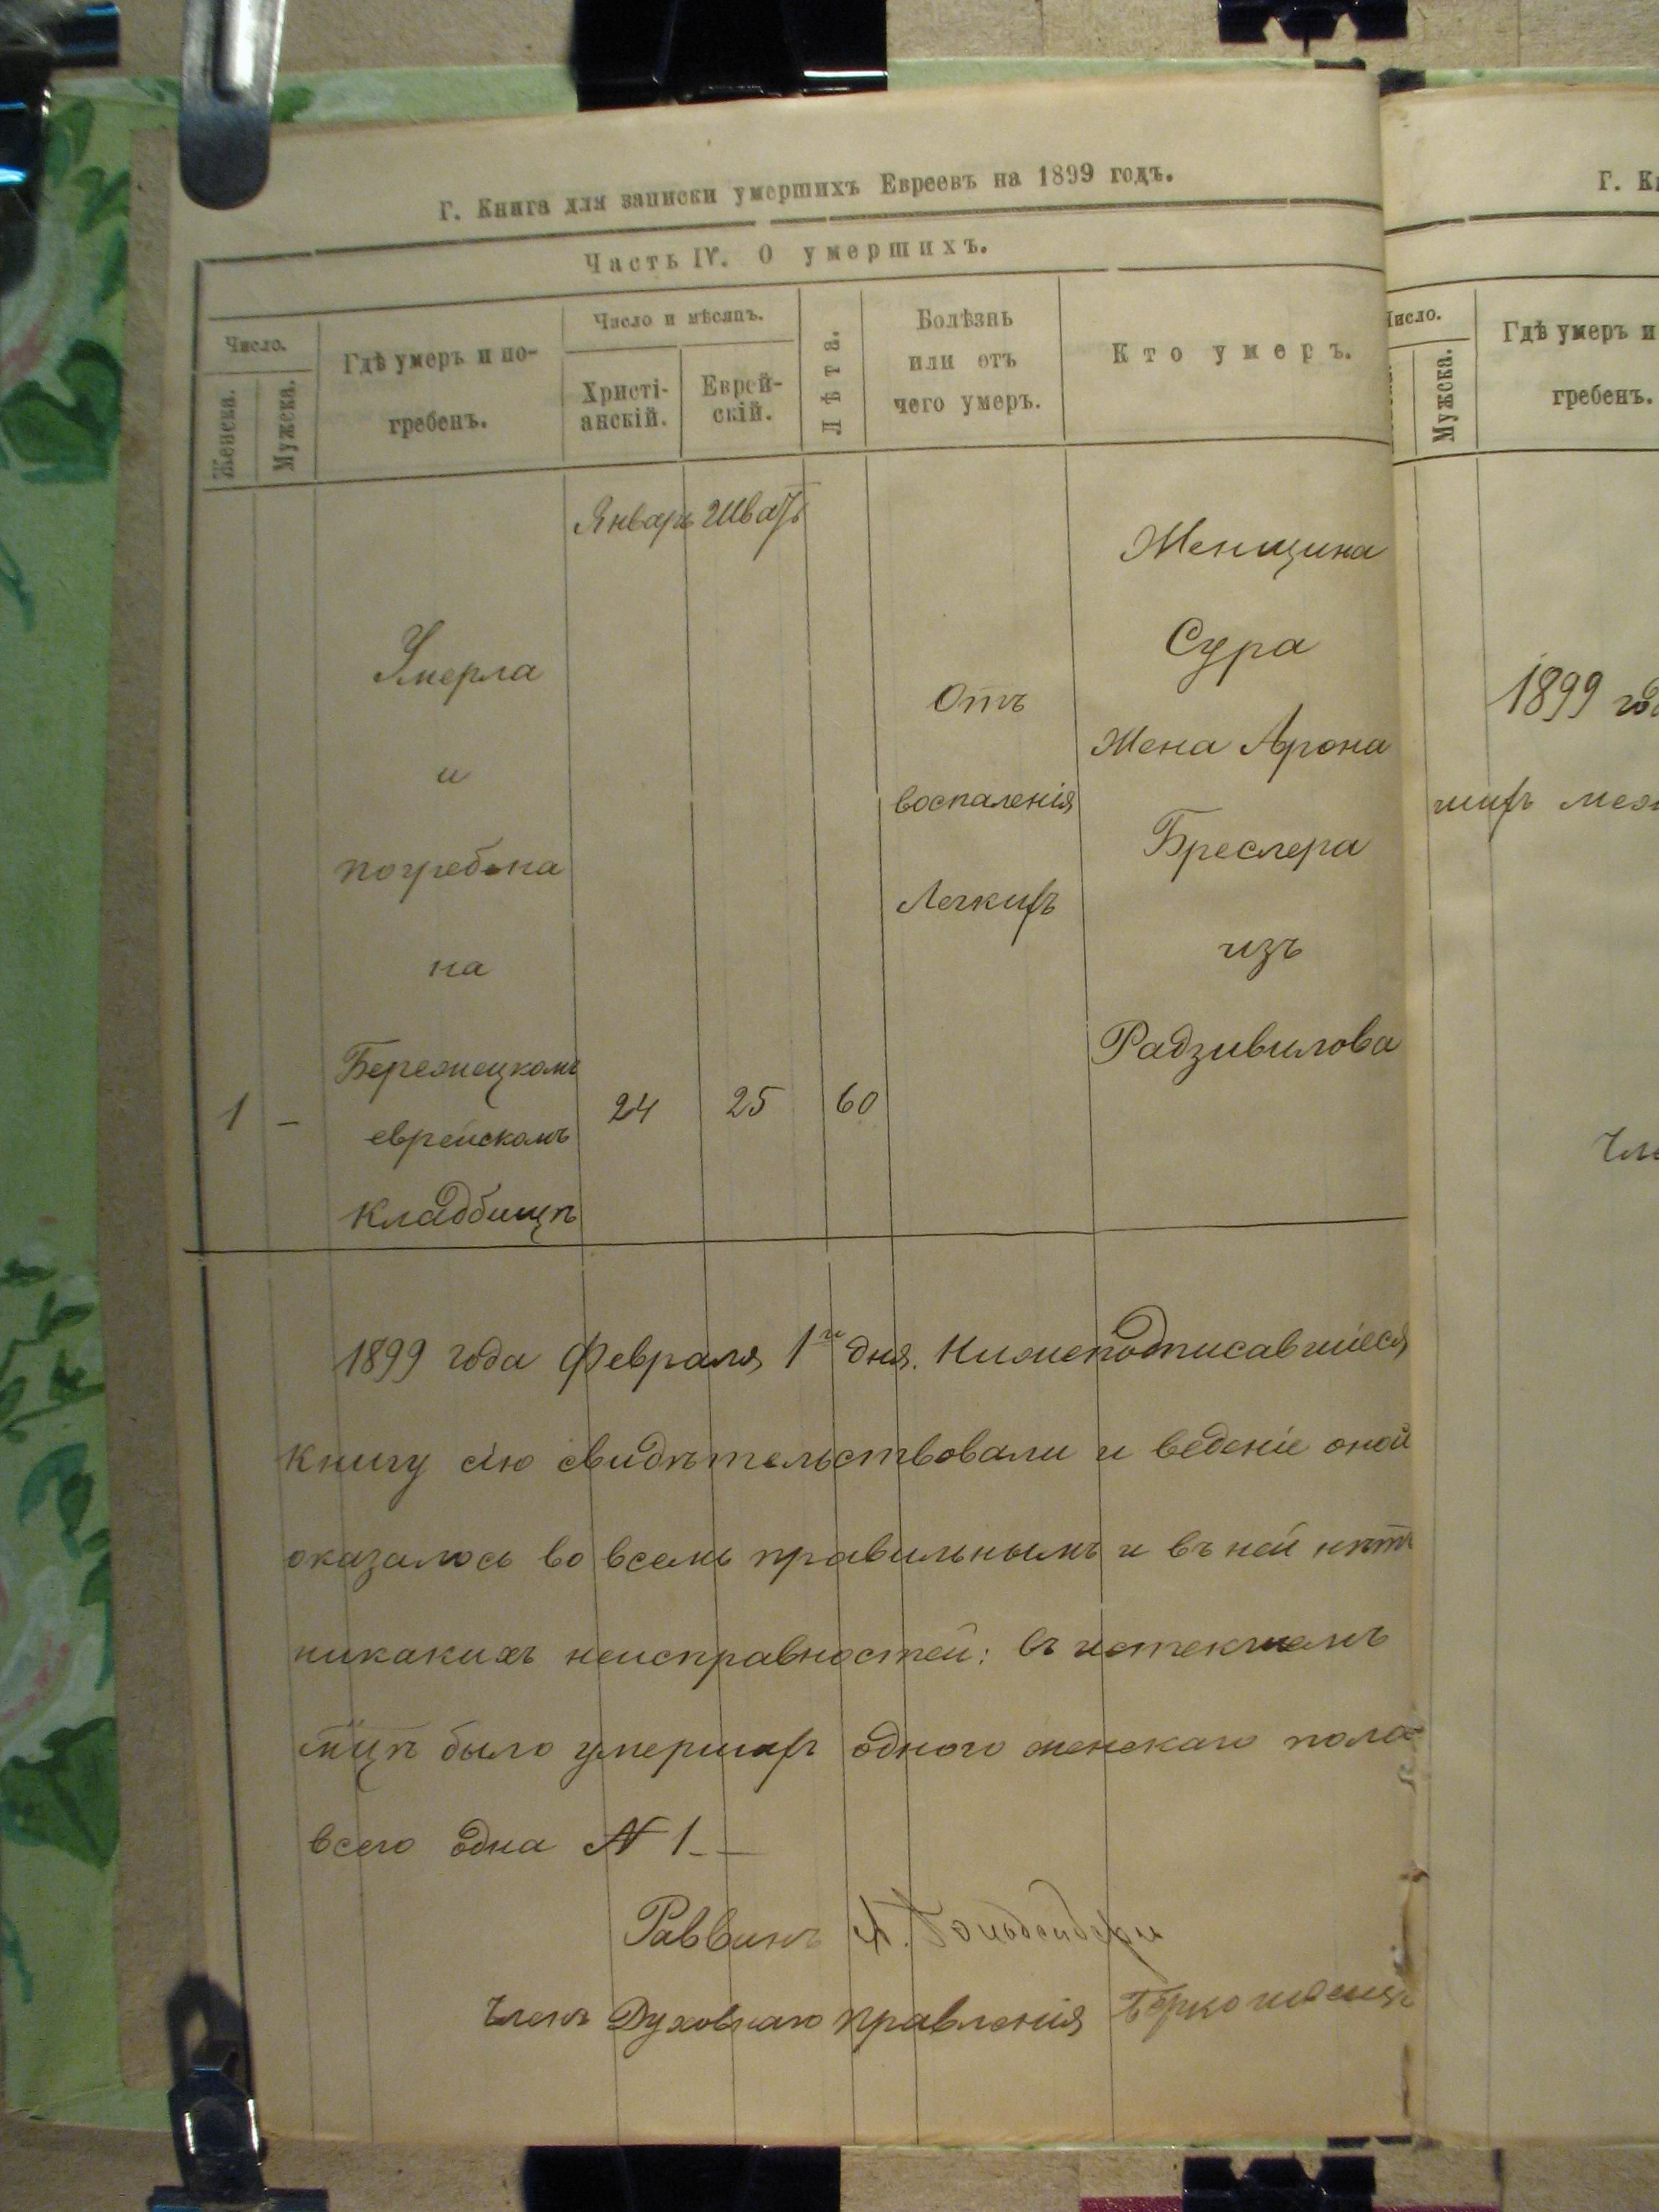 Г. Книга для записки умершихъ Евреевъ на 1899 годъ.
Часть IV. О умершихъ.
Число.
Женска.
Мужска.
Гдѣ умеръ и по-
гребенъ.
Число и мѣсяцъ.
Христі-
анскій.
Еврей-
скій.
Лѣта.
Болѣзнь
или отъ
чего умеръ.
Кто умеръ.
Январь Шватъ
1 -
Умерла
и
погребена
на
Бережецкомъ
еврейскомъ
кладбищѣ
24 25 60
Отъ
воспаленія
Легкихъ
Женщина
Сура
Жена Арона
Бреслера
изъ
Радзивилова
1899 года Февраля 1го дня. Нижеподписавшіеся
книгу сію свидѣтельствовали и веденіе оной
оказалось во всемъ правильнымъ и въ ней нѣтъ
никакихъ неисправностей: въ истекшемъ
м-цѣ было умершихъ одного женскаго пола
всего одна № 1 - -
Раввинъ
Членъ Духовнаго Правленія Берко
Г. Кн
Число.
Мужска.
Гдѣ умеръ и
гребенъ.
1899 год